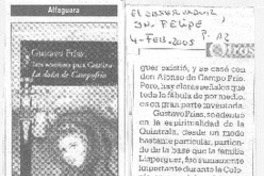 Alfaguara
Gustavo Frías
Tres nombres para Catalina
La doña de Campofrío
EL OBSERVADOR,
SAN FELIPE
4-FEB-2005 P. 12
guer existió, y se casó con
don Alonso de Campo Frío.
Pero, hay claros señales que
toda la fábula de por medio,
es en gran parte inventaria.
Gustavo Frías, so adentró
en la espiritualidad de la
Quintrala, desde un modo
bastante particular, partien-
do de la base que la familia
Lisperguer, fue sumamente
importante durante la Colo-